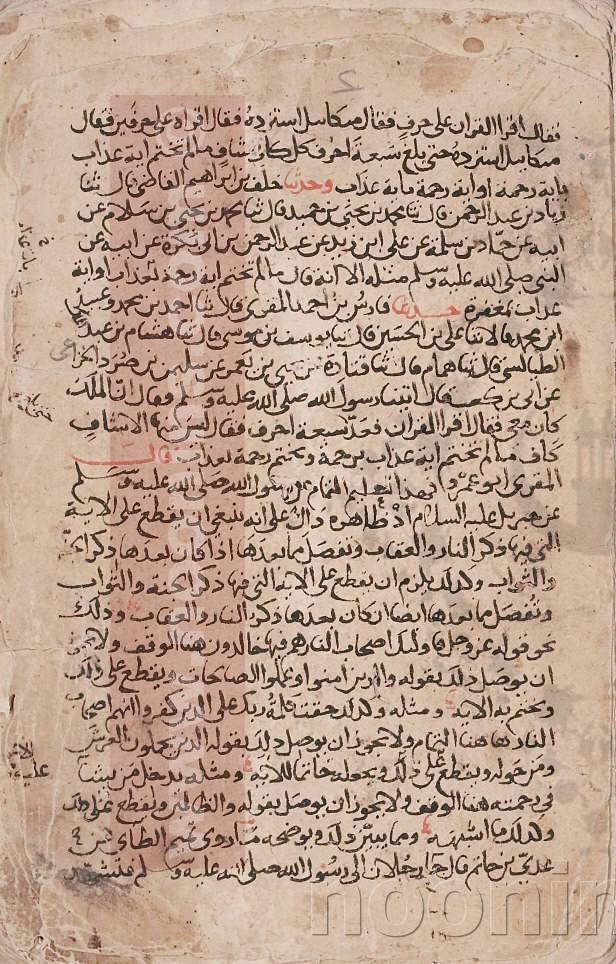 فقال اقرا القران على حرف فقال ميكائيل استزده فقال اقراه على حرفين فقال
ميكائيل استزده حتى بلغ سبعة احرف كل كاف شاف ما لم تختم اية عذاب
باية رحمة او اية رحمة باية عذاب وحدثنا خلف بن ابراهيم القاضي قال ثنا
زياد بن عبد الرحمن قال ثنا محمد بن يحيى بن حميد قال ثنا محمد بن يحيى بن سلام عن
ابيه عن حماد بن سلمة عن علي ابن زيد عن عبد الرحمن بن ابي بكرة عن ابيه عن
النبي صلى الله عليه وسلم مثله الا انه قال ما لم تختم اية رحمة بعذاب او اية
عذاب بمغفرة حدثنا فارس بن احمد المقري قال ثنا احمد بن محمد وعبيد
ابن محمد قالا ثنا علي بن الحسين قال ثنا يوسف بن موسى قال ثنا هشام بن عبد
الطيالسي قال ثنا همام قال ثنا قتادة عن يحيى بن يعمر عن سليمن بن صرد
عن ابي بن كعب قال اتينا رسول الله صلى الله عليه وسلم فقال ان الملك
كان معي فقال اقرا القران فعد سبعة احرف فقال ليس منها الا شاف
كاف ما لم تختم اية عذاب برحمة وتختم رحمة بعذاب قال
المقري ابو عمرو فهذا تعليم التمام من رسول الله صلى الله عليه وسلم
عن جبريل عليه السلام اذ ظاهره دال على انه ينبغي ان يقطع على الاية
التي فيها ذكر النار والعقاب وتفصل مما بعدها اذا كان بعدها ذكر
والثواب وكذلك يلزم ان يقطع على الاية التي فيها ذكر الجنة والثواب
وتفصل مما بعدها ايضا ان كان بعدها ذكر النار والعقاب وذلك
نحو قوله عز وجل فاوليك اصحاب النار هم فيها خالدون هنا الوقف ولا يجوز
ان يوصل ذلك بقوله والذين امنوا وعملوا الصالحات ويقطع على ذلك
ويختم به الاية ومثله وكذلك حقت كلمة ربك على الذين كفروا انهم اصحاب
النار هاهنا التمام ولا يجوز ان يوصل ذلك بقوله الذين يحملون العرش
ومن حوله ويقطع على ذلك ويجعله خاتما للاية ومثله يدخل من يشا
في رحمته هنا الوقف ولا يجوز ان يوصل بقوله والظالمين ويقطع على ذلك
وكذلك ما اشبهه ومما يبين ذلك ويوضحه ما روى تميم الطائي عن
عدي بن حاتم قال جا رجلان الى رسول الله صلى الله عليه وسلم فتشهد
noonin